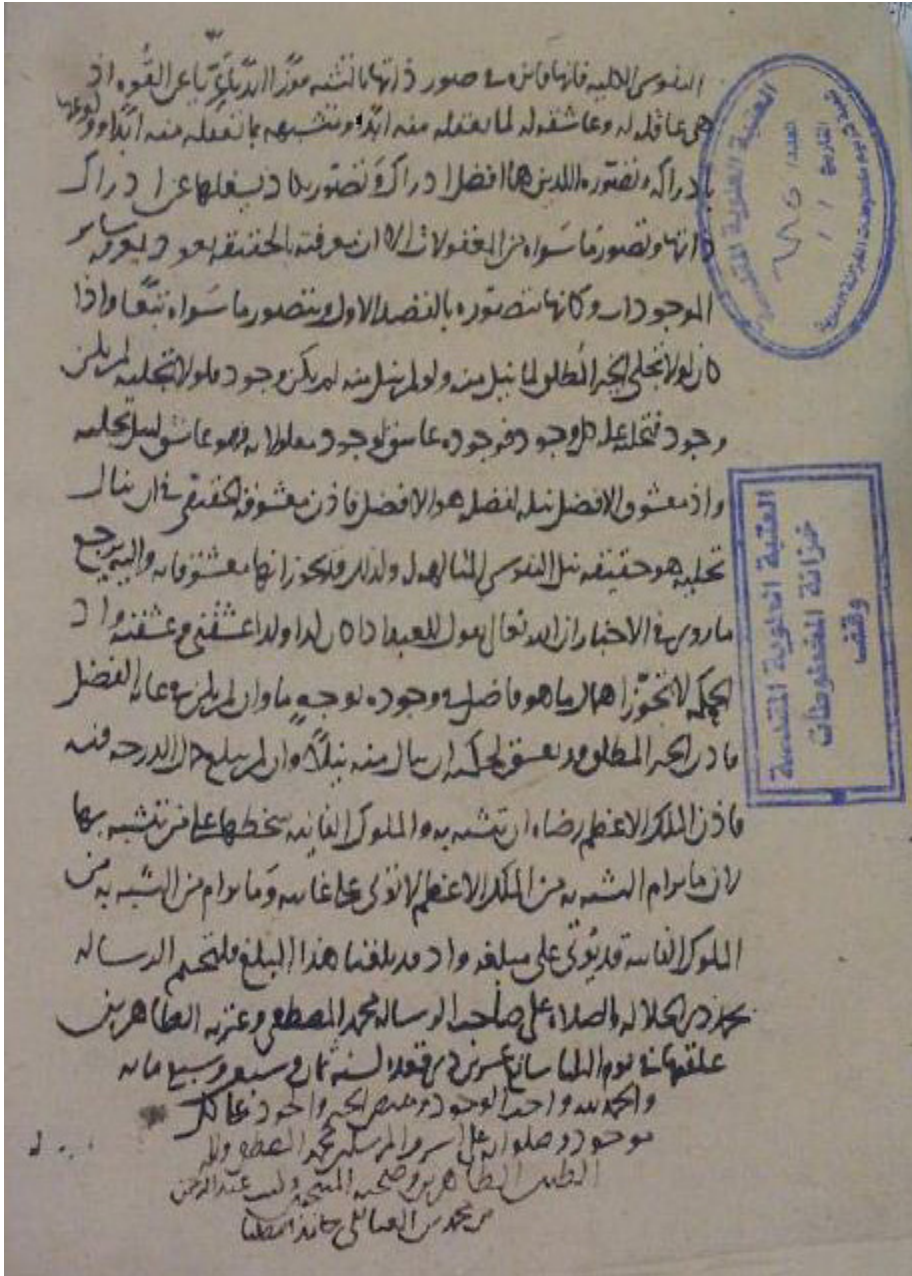 النفوس الالهيه فانها فائزه في صور ذاتها بالتشبه فوزًا ابديًا عريًّا عن القوه اذ
هي عاقله له وعاشقه له لما تعقله منه ابدًا ومتشبهه بما تعقله منه ابدًا وولوعها
بادراكه وتصوره اللذين هما افضل ادراك وتصور يكاد يشغلها عن ادراك
ذاتها وتصور ما سواه من المعقولات الا ان معرفته بالحقيقه تعود بمعرفه سائر
الموجودات وكانها تتصوره بالقصد الاول وتتصور ما سواه تبعًا واذا
كان لولا تجلي الخير المطلق لما نيل منه ولو لم ينل منه لم يكن وجود فلولا تجليه لم يكن
وجود فتجليه عله كل وجود فهو بوجوده عاشق لوجود معلولاته فهو عاشق لنيل تجليه
واذ معشوق الافضل نيله لفضله هو الافضل فاذن معشوقه الحقيقي في ان ينال
تجليه هو حقيقه نيل النفوس المتالهه له ولذلك قد يجوز انها معشوقاته واليه يرجع
ما روي في الاخبار ان الله تعالى يقول للعبد اذا كان كذا وكذا عشقني وعشقته واذ
الحكمه لا تجوّز اهمال ما هو فاضل في وجوده بوجهٍ ما وان لم يكن في غايه الفضل
فاذن الخير المطلق قد يعشق لحكمته ان ينال منه نيلًا وان لم يبلغ كمال الدرجه فيه
فاذن الملك الاعظم رضاه ان تتشبه به والملوك الفانيه سخطها على من تتشبه بها
لان ما يرام التشبه به من الملك الاعظم لا تؤتى على غايته وما يرام من التشبه به من
الملوك الفانيه قد يؤتى على مبلغه واذ قد بلغنا هذا المبلغ فلنختم الرساله
بحمد ذي الجلاله والصلاه على صاحب الرساله محمد المصطفى وعترته الطاهرين
علقها في يوم الثلثا سابع عشرين ذي قعده لسنه ثمان وسبعين وسبع مائه
والحمد لله واجب الوجود ومفيض الخير والجود على كل
موجود وصلواته على المرسلين محمد المصطفى واله
الطيبين الطاهرين وصحبه وكتب عبد الرحمن
بن محمد بن العتائقي حامدا مصليا
العتبة العلوية المقدسة
العدد /
التاريخ / /
العتبة العلوية المقدسة
خزانة المخطوطات
وقف